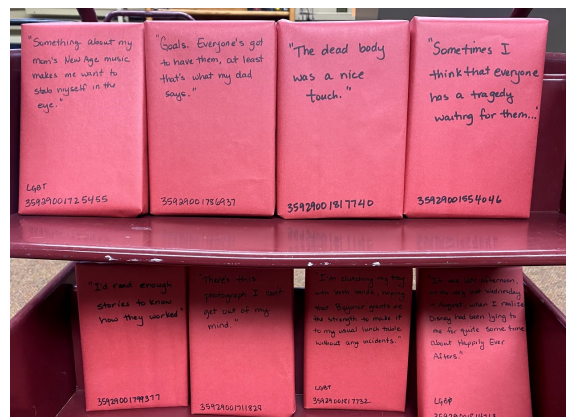 "Something about my
mom's New Age music
makes me want to
stab myself in the
eye."
LGBT
35929001725455
"Goals. Everyone's got
to have them, at least
that's what my dad
says."
35929001786937
"The dead body
was a nice
touch."
35929001817740
"Sometimes I
think that everyone
has a tragedy
waiting for them..."
35929001554046
"I'd read enough
stories to know
how they worked"
35929001799377
"There's this
photograph I can't
get out of my
mind."
35929001711829
"I'm clutching my tray
with both hands, hoping
that Beyoncé grants me
the strength to make it
to my usual lunch table
without any incidents."
LGBT
35929001817732
"It was late afternoon,
on the very last Wednesday
in August, when I realized
Disney had been lying to
me for quite some time
about Happily Ever
Afters."